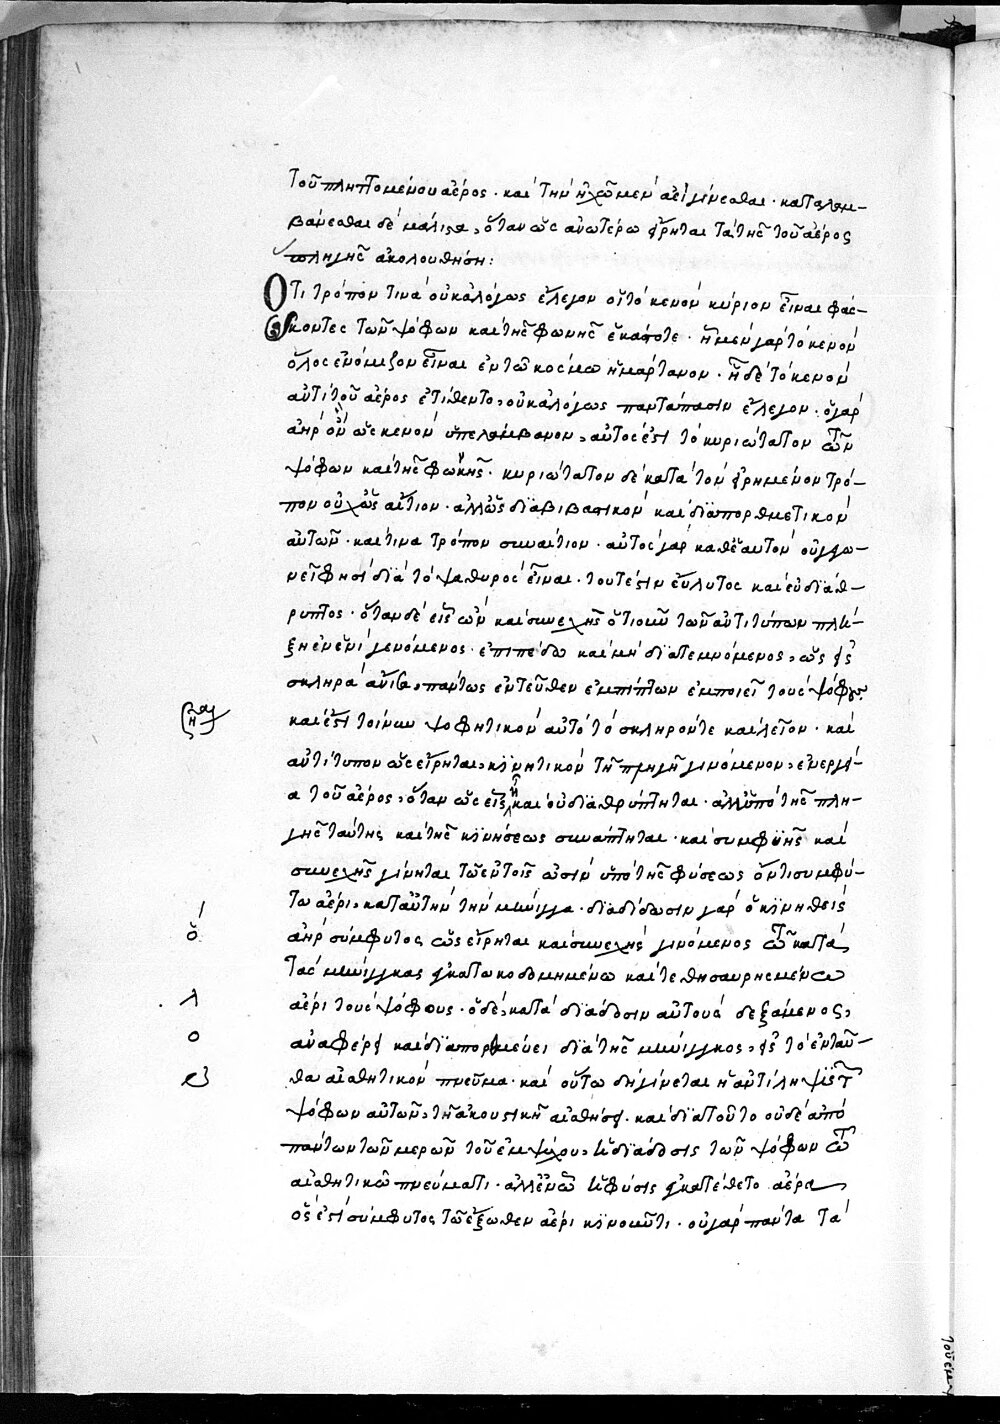 τοῦ πληττομένου ἀέρος· καὶ τὴν ἠχὼ μὲν ἀεὶ γίνεσθαι· καταλαμ-
βάνεσθαι δὲ μάλιστα, ὅταν ὡς ἀνωτέρω εἴρηται τὰ τῆς τοῦ ἀέρος
πληγῆς ἀκολουθήση:
Ὅτι τρόπον τινὰ οὐκ ἀλόγως ἔλεγον οἱ τὸ κενὸν κύριον εἶναι φάς-
κοντες τῶν ψόφων καὶ τῆς φωνῆς ἑκάστοτε· ἧ μὲν γὰρ τὸ κενὸν
ὅλως ἐνόμιζον εἶναι ἐν τῶ κόσμω ἡμάρτανον· ἧ δὲ τὸ κενὸν
ἀντὶ τοῦ ἀέρος ἐτίθεντο, οὐκ ἀλόγως παντάπασιν ἔλεγον· ὁ γὰρ
ἀὴρ ὃν ὡς κενὸν ὑπελάμβανον, αὐτός ἐστι τὸ κυριώτατον τῶν
ψόφων καὶ τῆς φωνῆς· κυριώτατον δὲ κατὰ τὸν εἰρημένον τρό-
πον οὐχ ὡς αἴτιον· ἀλλ' ὡς διαβιβαστικὸν καὶ διαπορθμευτικὸν
αὐτῶν· καί τινα τρόπον συναίτιον· αὐτὸς γὰρ καθ' ἑαυτὸν οὐ γω-
νεῖ φησὶ διὰ τὸ ψαθυρὸς εἶναι· τουτέστιν εὔλυτος καὶ εὐδιάθ-
ρυπτος· ὅταν δὲ εἷς ὢν καὶ συνεχὴς ὁτιοῦν τῶν ἀντιτύπων πλή-
ξη ἐν ἑνὶ γενόμενος· ἐπιπέδω καὶ μὴ διατεμνόμενος, ὡς εἰς
σκληρὰ ἄττα, πάντως ἐντεῦθεν ἐμπίπτων ἐμποιεῖ τοὺς ψόφους
καὶ ἔστι τοίνυν ψοφητικὸν αὐτὸ τὸ σκληρόν τε καὶ λεῖον· καὶ
ἀντίτυπον ὡς εἴρηται, κινητικὸν τῆ πληγῆ γινόμενον, ἐνεργεί-
α τοῦ ἀέρος, ὅταν ὡς εἷς ἦ καὶ οὐ διαθρύπτηται· ἀλλ' ὑπὸ τῆς πλη-
γῆς ταύτης καὶ τῆς κινήσεως συνάπτηται· καὶ συμφυὴς καὶ
συνεχὴς γίνηται τῶ ἐν τοῖς ὠσὶν ὑπὸ τῆς φύσεως ὄντι συμφύ-
τω ἀέρι, κατ' αὐτὴν τὴν μήνιγγα· διαδίδωσιν γὰρ ὁ κινηθεὶς
ἀὴρ σύμφυτος ὡς εἴρηται καὶ συνεχὴς γινόμενος τῶ κατὰ
τὰς μήνιγγας ἐγκατωκοδομημένω καὶ τεθησαυρισμένω
ἀέρι τοὺς ψόφους· ὁ δὲ, κατὰ διάδοσιν αὐτοὺς δεξάμενος,
ἀναφέρει καὶ διαπορθμεύει διὰ τῆς μήνιγγος, εἰς τὸ ἐνταῦ-
θα αἰσθητικὸν πνεῦμα· καὶ οὕτω δὴ γίνεται ἡ ἀντίληψις τῶν
ψόφων αὐτῶν, τῆ ἀκουστικῆ αἰσθήσει· καὶ διὰ τοῦτο οὐδὲ ἀπὸ
πάντων τῶν μερῶν τοῦ ἐμψύχου, ἡ διάδοσις τῶν ψόφων τῶ
αἰσθητικῶ πνεύματι· ἀλλ' ἐν ὧ ἡ φύσις ἐγκατέθετο ἀέρα
ὅς ἐστι σύμφυτος τῶ ἔξωθεν ἀέρι κινοῦντι· οὐ γὰρ πάντα τὰ